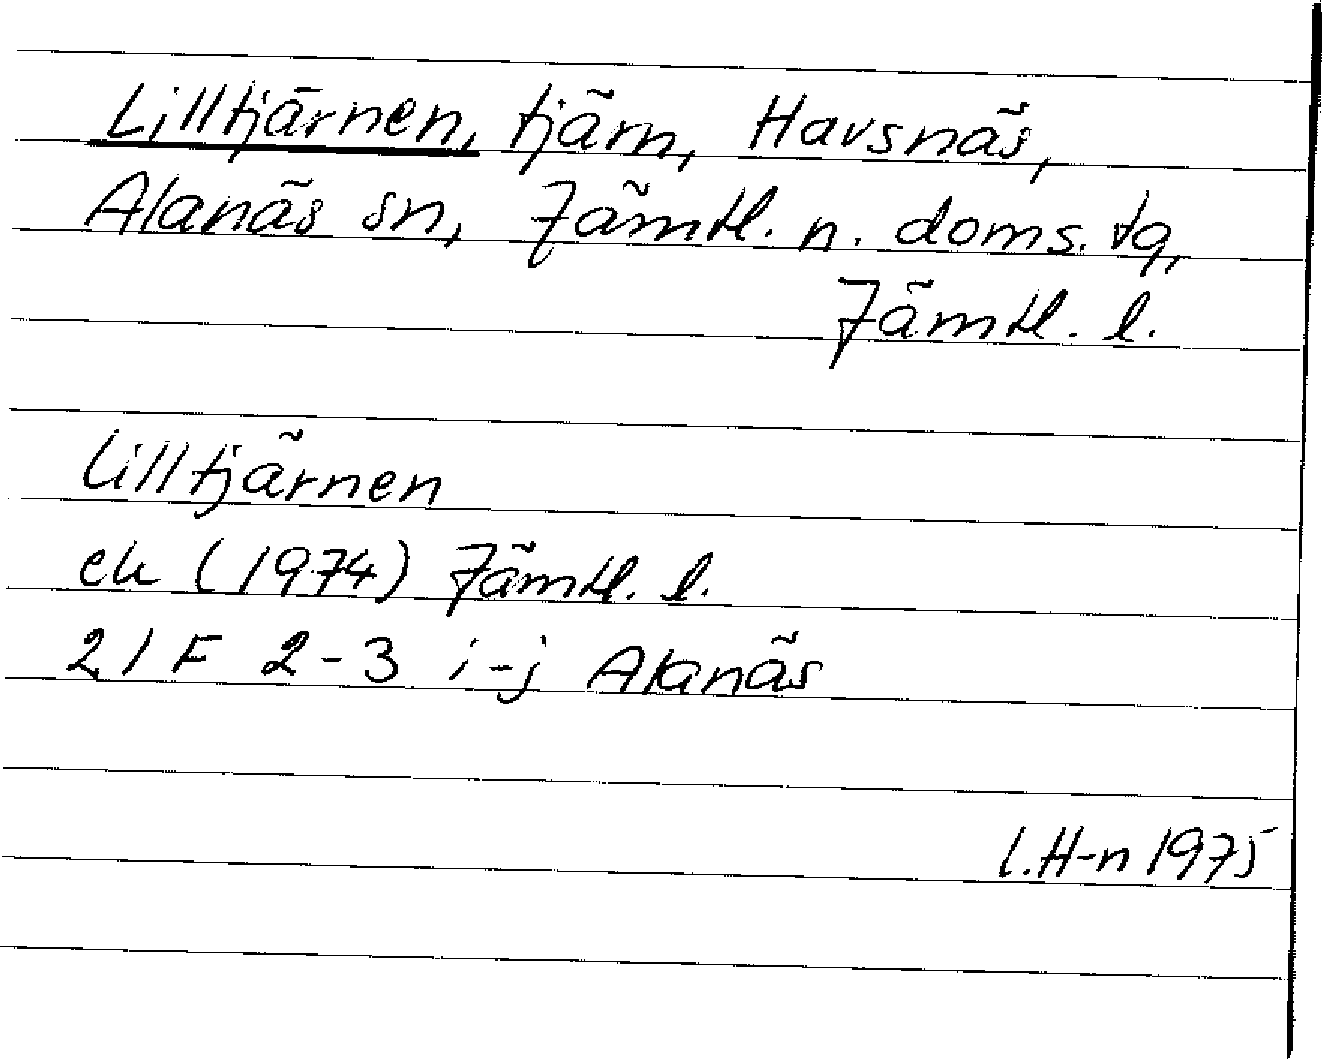 Lilltjärnen, tjärn, Havsnäs,
Alanäs sn, Jämtl. n. doms. tg,
Jämtl. l.
Lilltjärnen
ek (1974) Jämtl. l.
21F 2-3 i-j Alanäs
l.H-n 1975